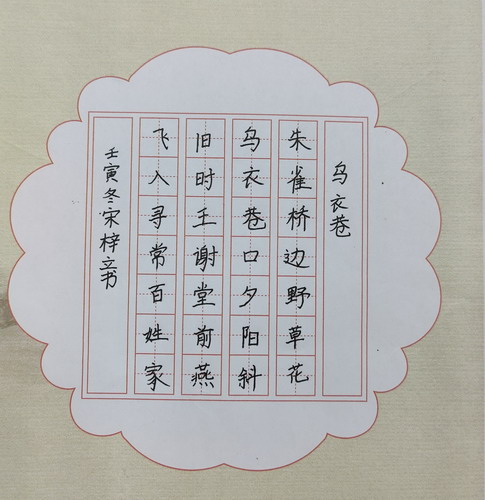 乌衣巷
朱雀桥边野草花
乌衣巷口夕阳斜
旧时王谢堂前燕
飞入寻常百姓家
壬寅冬宋梓立书